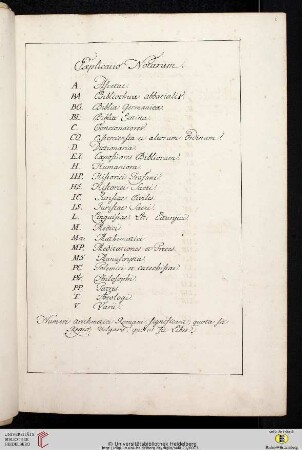 Explicatio Notarum.
A. Ascetae.
BA. Bibliotheca abbatialis.
BG. Biblia Germanica.
BL. Biblia Latina.
C. Concionatores
CO. Cisterciensia et aliorum Ordinum.
D. Dictionaria.
E.I. Expositores Bibliorum.
H. Humaniora.
HP. Historici Profani.
HS. Historici Sacri.
IC. Juristae Civiles.
IS. Juristae Sacri.
L. Linguistae. It.
M. Medici
Ma. Mathematici
MP. Meditationes et Preces.
MS. Manuscripta.
PC. Polemici et catechistae.
Ph. Philosophi.
PP. Patres.
T. Theologi.
V. Varii.
Numeri Arithmetici Romani significant, quota sit
UNIVERSITÄTS-
BIBLIOTHEK
HEIDELBERG
© Universitätsbibliothek Heidelberg